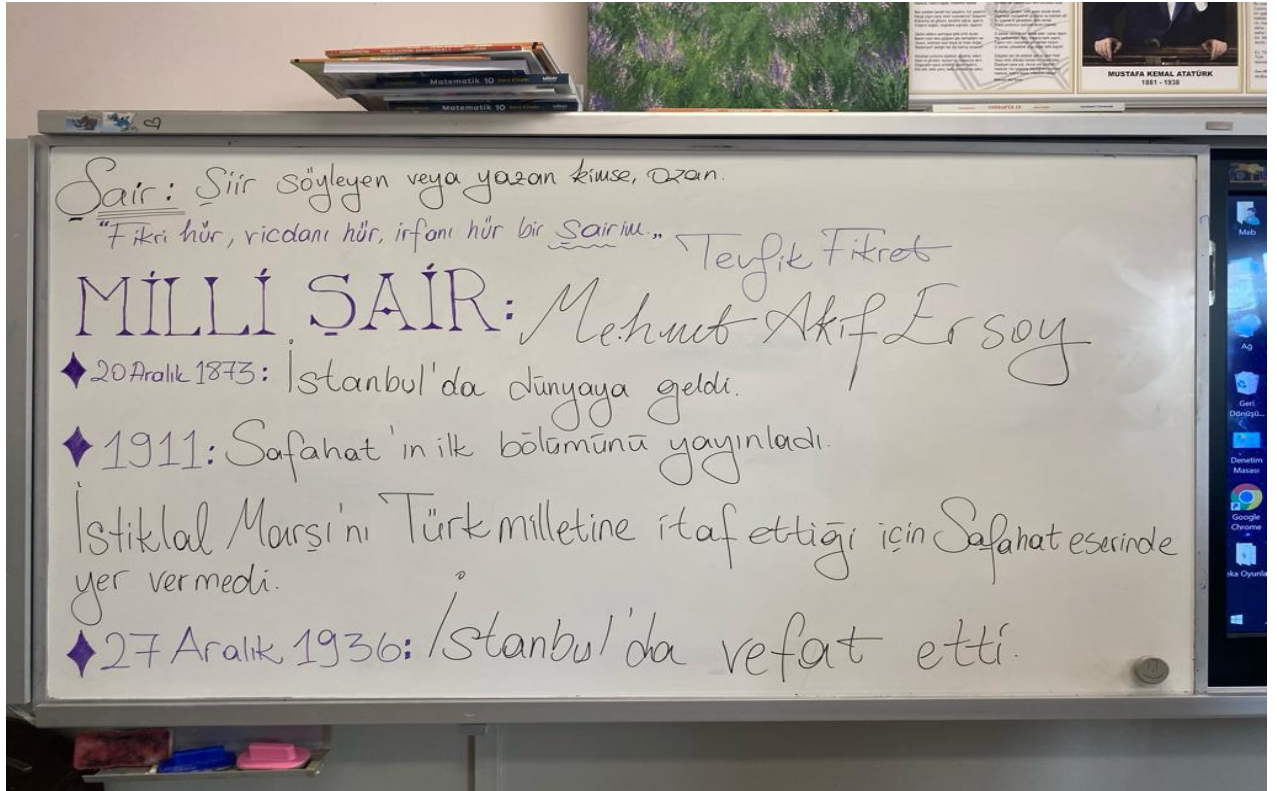 Matematik 10 Ders Kitabı
Matematik 10 Ders Kitabı
MUSTAFA KEMAL ATATÜRK
1881 - 1938
Şair: Şiir söyleyen veya yazan kimse, ozan.
"Fikri hür, vicdanı hür, irfanı hür bir şairim.„
Tevfik Fikret
MİLLİ ŞAİR: Mehmet Akif Ersoy
20 Aralık 1873: İstanbul'da dünyaya geldi.
1911: Safahat'ın ilk bölümünü yayınladı.
İstiklal Marşı'nı Türk milletine itaf ettiği için Safahat eserinde
yer vermedi.
27 Aralık 1936: İstanbul'da vefat etti.
Meb
Ağ
Geri
Dönüşü...
Denetim
Masası
Google
Chrome
eka Oyunla